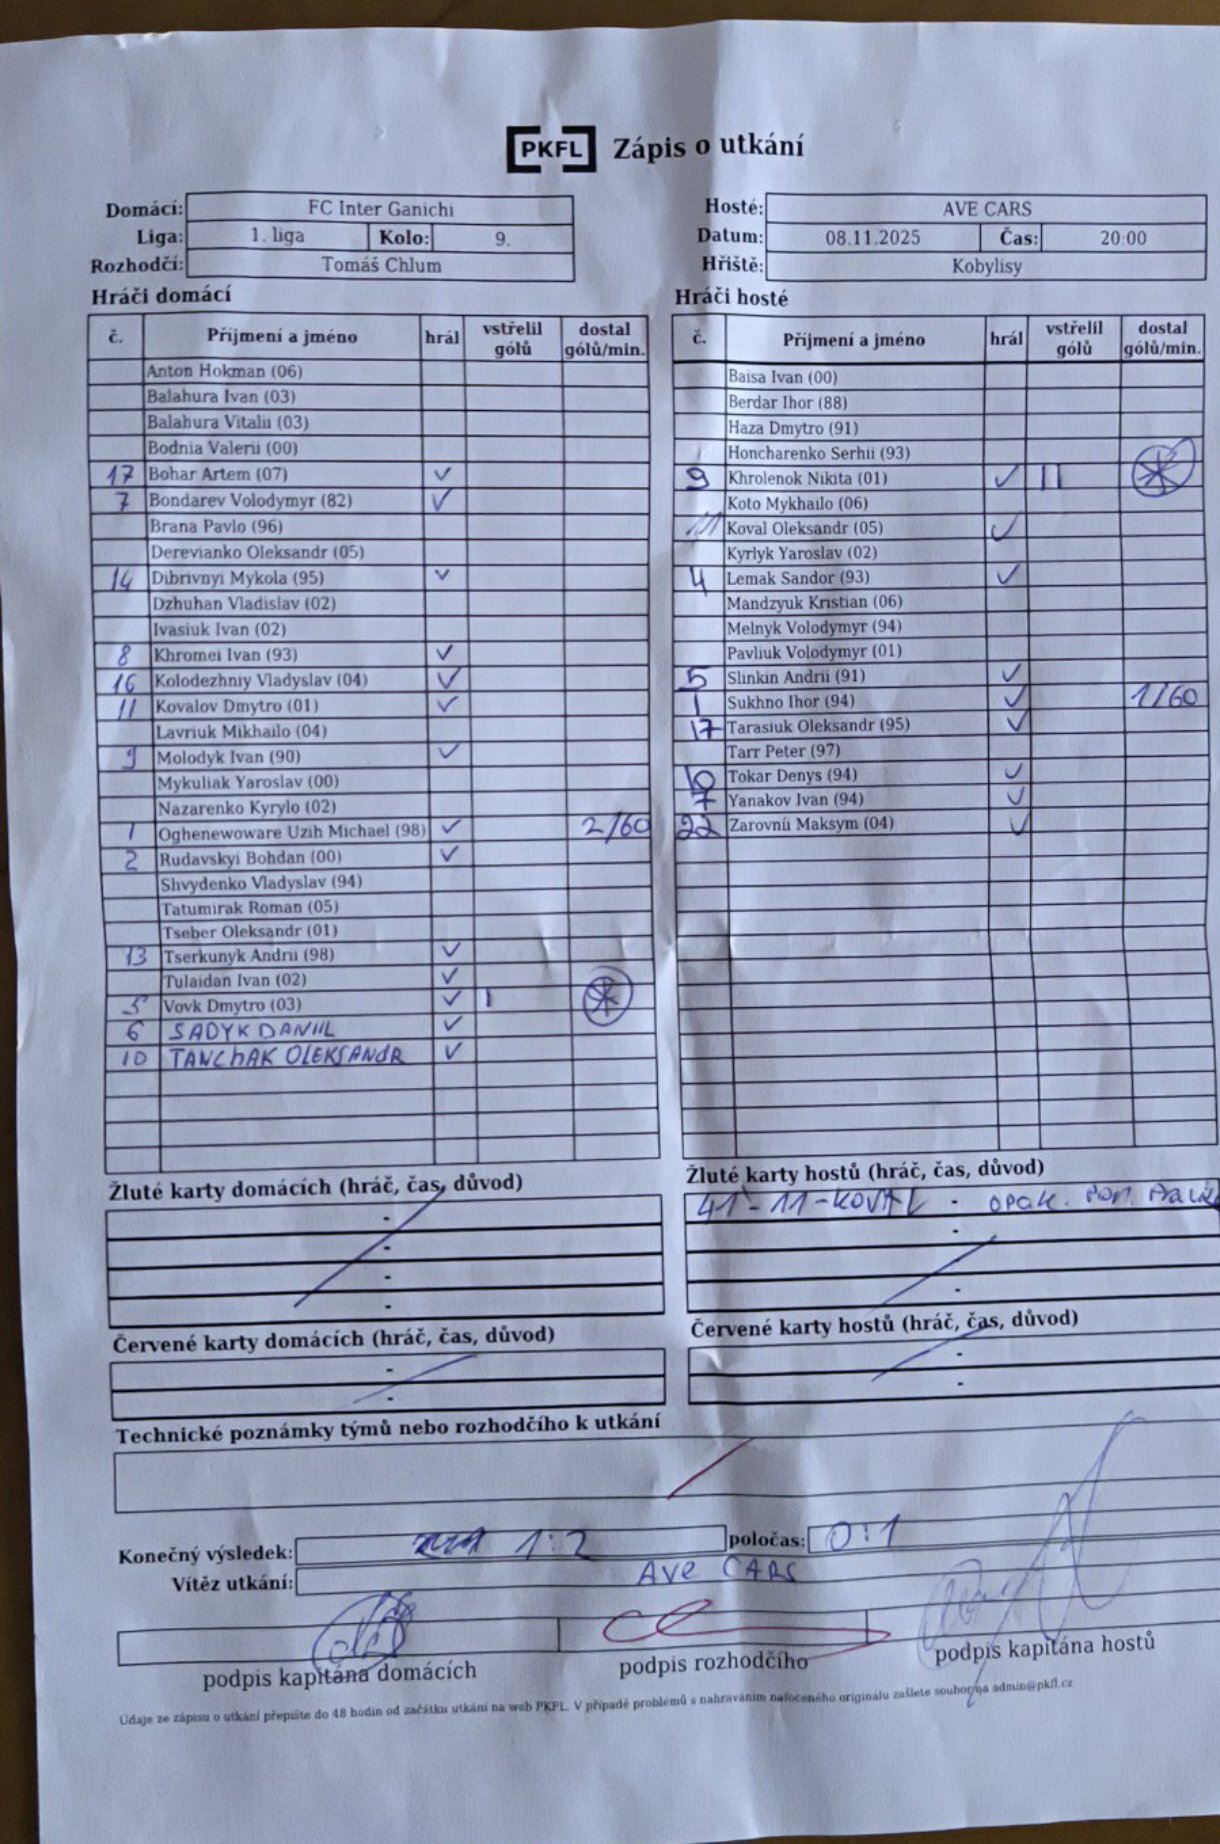 PKFL Zápis o utkání
Domácí: FC Inter Ganichi
Liga: 1. liga Kolo: 9.
Rozhodčí: Tomáš Chlum
Hosté: AVE CARS
Datum: 08.11.2025 Čas: 20:00
Hřiště: Kobylisy
Hráči domácí
č. Příjmení a jméno hrál vstřelil gólů dostal gólů/min.
Anton Hokman (06)
Balahura Ivan (03)
Balahura Vitalii (03)
Bodnia Valerii (00)
17 Bohar Artem (07) ✓
7 Bondarev Volodymyr (82) ✓
Brana Pavlo (96)
Derevianko Oleksandr (05)
14 Dibrivnyi Mykola (95) ✓
Dzhuhan Vladislav (02)
Ivasiuk Ivan (02)
8 Khromei Ivan (93) ✓
16 Kolodezhniy Vladyslav (04) ✓
11 Kovalov Dmytro (01) ✓
Lavriuk Mikhailo (04)
9 Molodyk Ivan (90) ✓
Mykuliak Yaroslav (00)
Nazarenko Kyrylo (02)
1 Oghenewoware Uzih Michael (98) ✓ 2/60
2 Rudavskyi Bohdan (00) ✓
Shvydenko Vladyslav (94)
Tatumirak Roman (05)
Tseber Oleksandr (01)
13 Tserkunyk Andrii (98) ✓
Tulaidan Ivan (02) ✓
5 Vovk Dmytro (03) ✓ I
6 SADYK DANIIL ✓
10 TANCHAK OLEKSANDR ✓
Hráči hosté
č. Příjmení a jméno hrál vstřelil gólů dostal gólů/min.
Baisa Ivan (00)
Berdar Ihor (88)
Haza Dmytro (91)
Honcharenko Serhii (93)
9 Khrolenok Nikita (01) ✓ II
Koto Mykhailo (06)
11 Koval Oleksandr (05) ✓
Kyrlyk Yaroslav (02)
4 Lemak Sandor (93) ✓
Mandzyuk Kristian (06)
Melnyk Volodymyr (94)
Pavliuk Volodymyr (01)
5 Slinkin Andrii (91) ✓
1 Sukhno Ihor (94) ✓ 1/60
17 Tarasiuk Oleksandr (95) ✓
Tarr Peter (97)
10 Tokar Denys (94) ✓
7 Yanakov Ivan (94) ✓
22 Zarovnii Maksym (04) ✓
Žluté karty domácích (hráč, čas, důvod)
-
-
-
-
Žluté karty hostů (hráč, čas, důvod)
41' - 11 - KOVAL - opak. por.
-
-
-
Červené karty domácích (hráč, čas, důvod)
-
-
Červené karty hostů (hráč, čas, důvod)
-
-
Technické poznámky týmů nebo rozhodčího k utkání
Konečný výsledek: 1:2 poločas: 0:1
Vítěz utkání: AVE CARS
podpis kapitána domácích podpis rozhodčího podpis kapitána hostů
Údaje ze zápisu o utkání přepište do 48 hodin od začátku utkání na web PKFL. V případě problémů s nahráváním nafoceného originálu zašlete soubor na admin@pkfl.cz